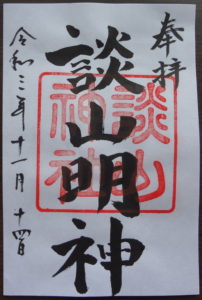 奉拝
談山明神
談山神社
令和三年十一月十四日